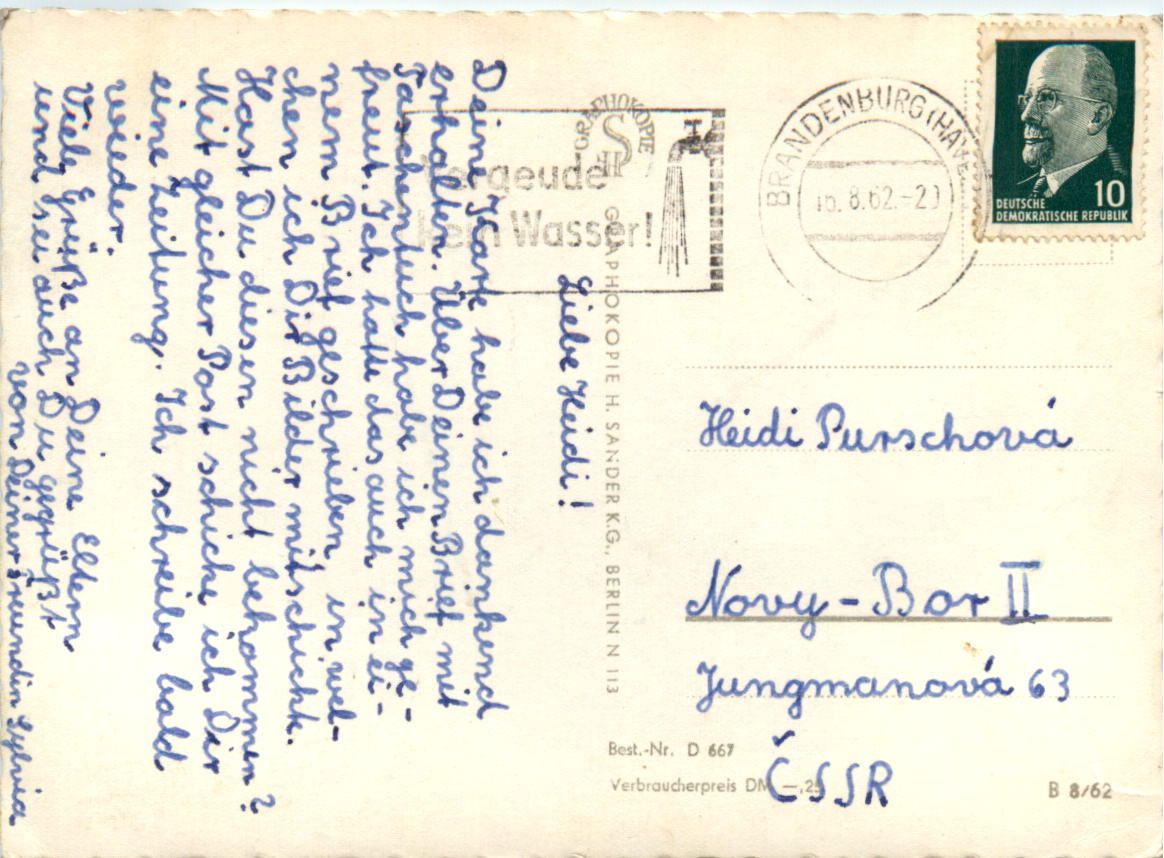 Liebe Heidi!
Deine Karte habe ich dankend
erhalten. Über Deinen Brief mit
Taschentuch habe ich mich ge-
freut. Ich hatte das auch in ei-
nem Brief geschrieben, in wel-
chen ich Dir Bilder mitschickt.
Hast Du diesen nicht bekommen?
Mit gleicher Post schicke ich Dir
eine Zeitung. Ich schreibe bald
wieder.
Viele Grüße an Deine Eltern
und sei auch Du gegrüßt
von Deiner Freundin Sylvia
GRAPHOKOPIE
H S
GRAPHOKOPIE H. SANDER K.G., BERLIN N 113
Vergeude
kein Wasser!
BRANDENBURG (HAVEL
16.8.62.-20
10
DEUTSCHE
DEMOKRATISCHE REPUBLIK
Heidi Purschová
Novy-Bor II
Jungmanová 63
ČSSR
Best.-Nr. D 667
Verbraucherpreis DM -,25
B 8/62